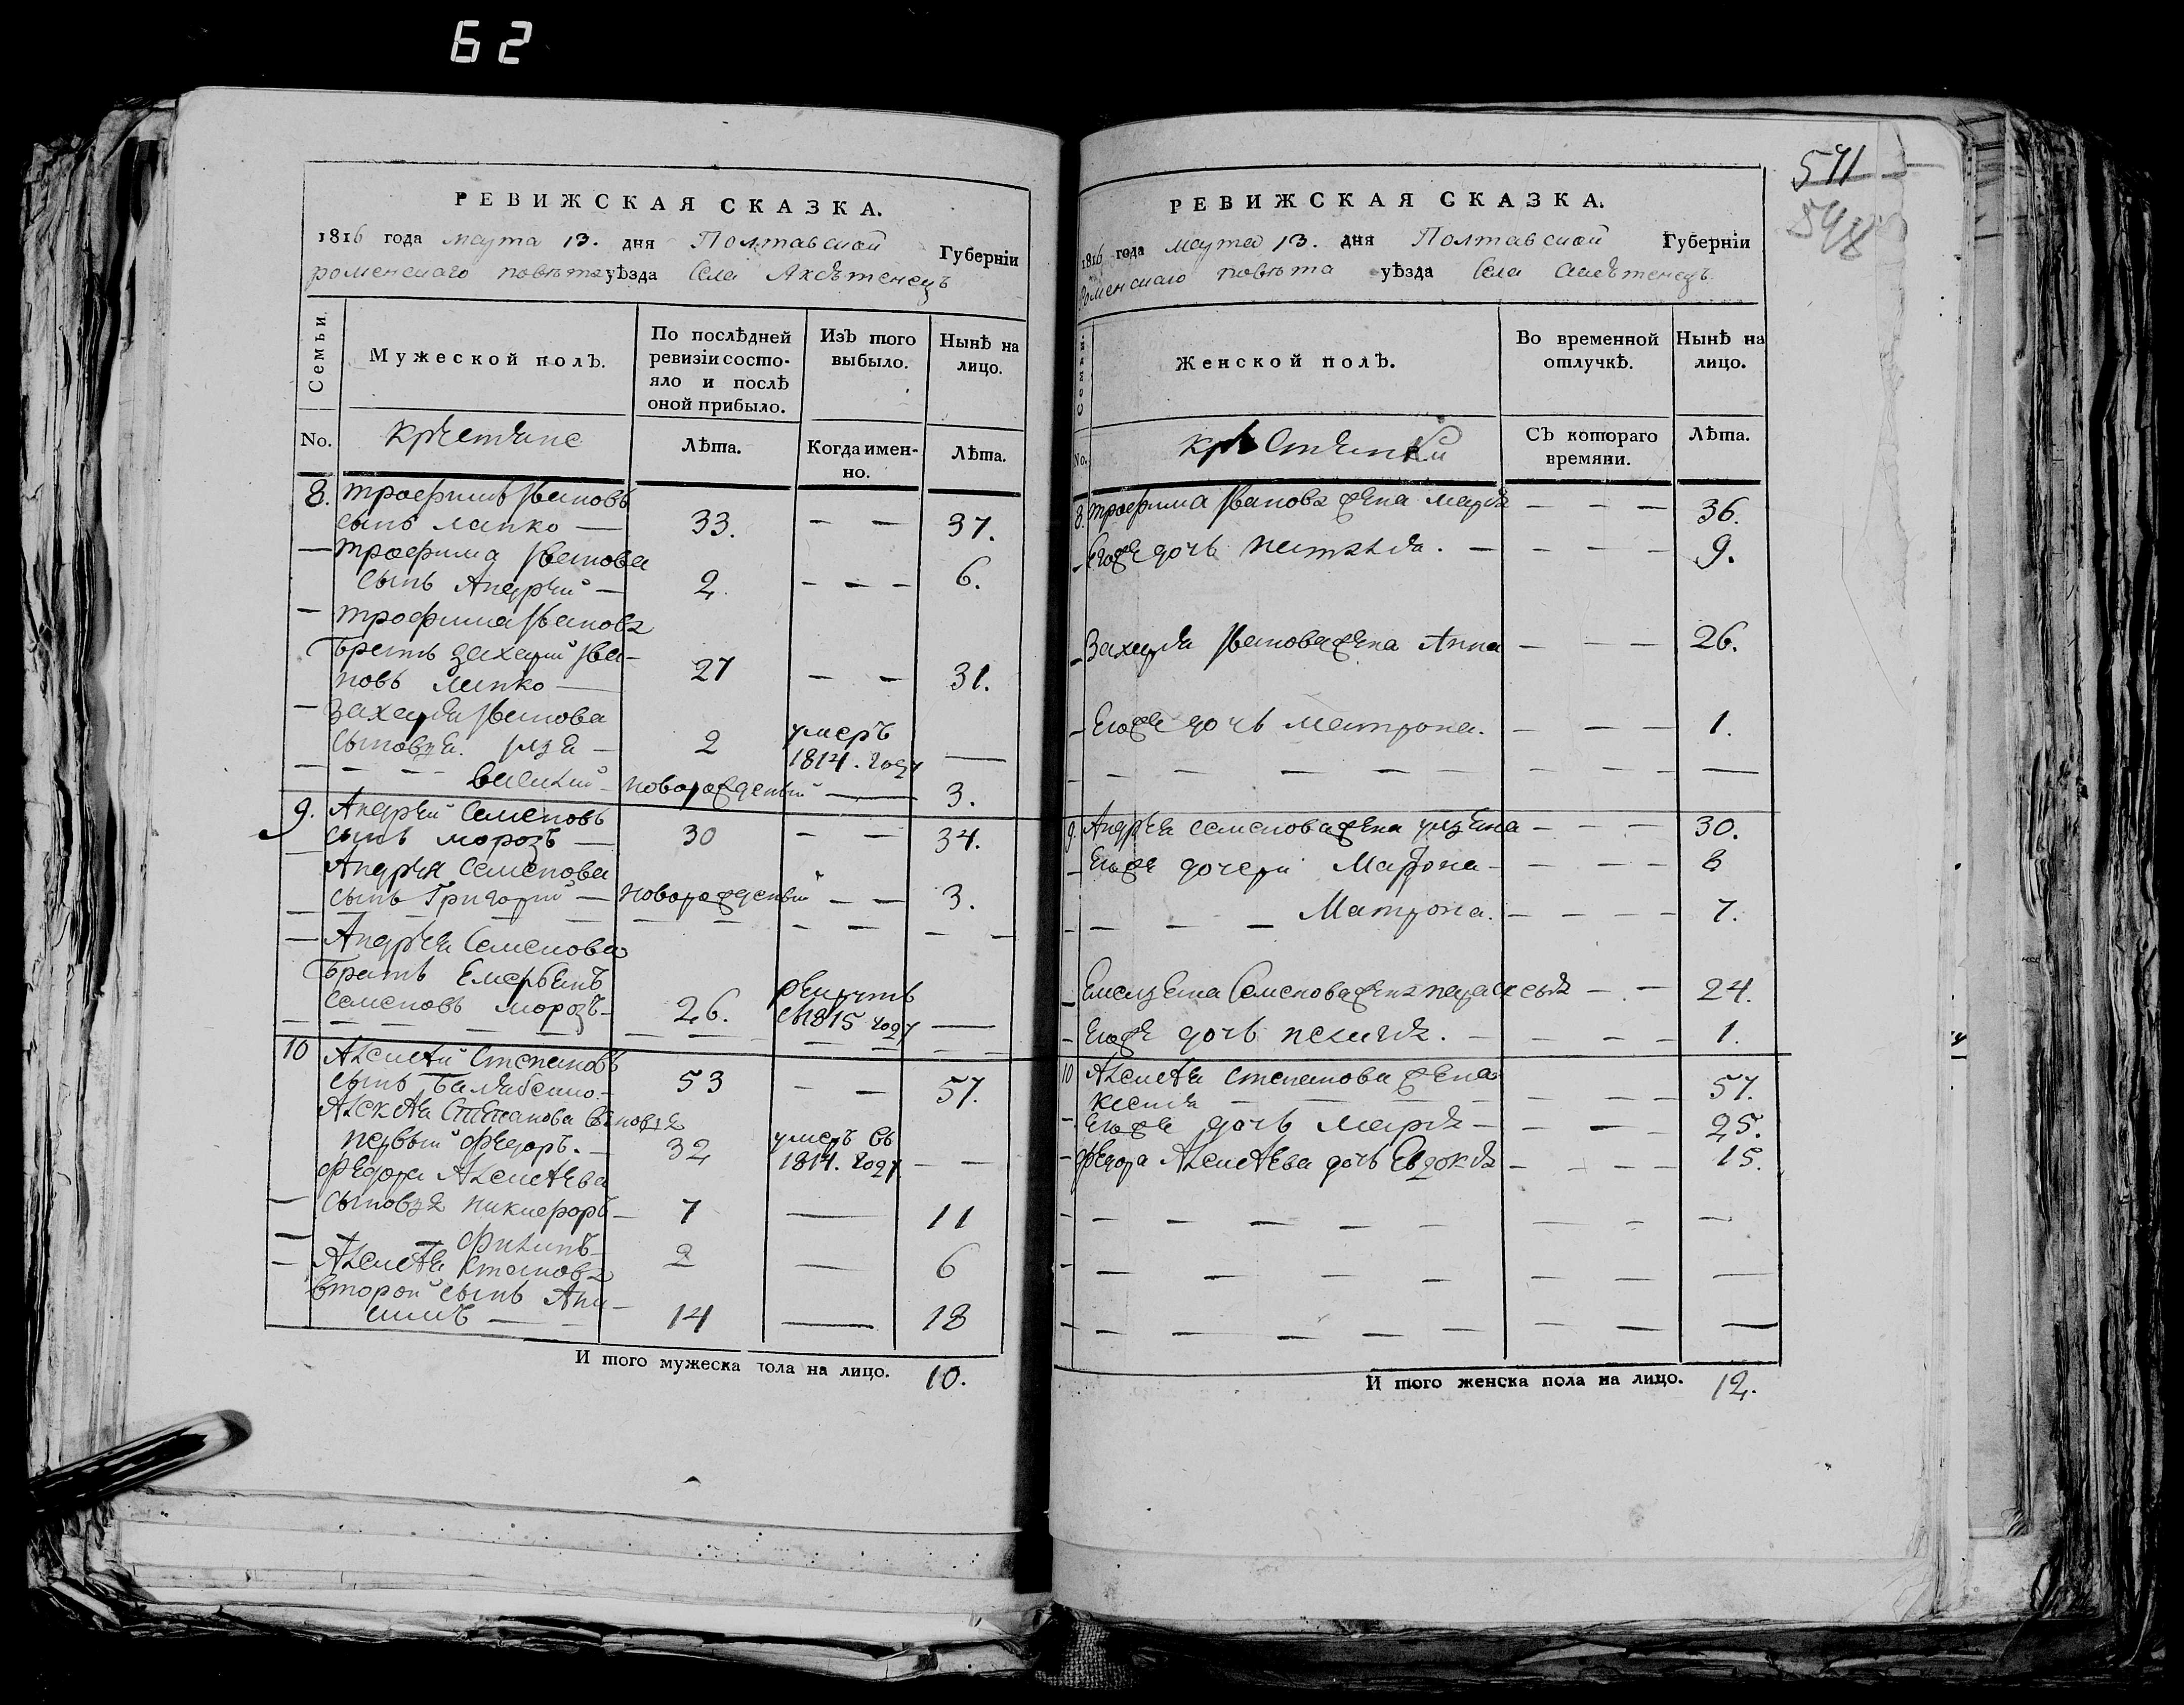 62
РЕВИЖСКАЯ СКАЗКА.
1816 года марта 13. дня Полтавской Губерніи
роменскаго повѣта уѣзда Села
Семьи.
Мужеской полъ.
По послѣдней ревизіи состо-
яло и послѣ
оной прибыло.
Изъ того
выбыло.
Нынѣ на
лицо.
No.
крестяне
Лѣта.
Когда имен-
но.
Лѣта.
8. трофимъ Ивановъ
сынъ лапко — 33. — — 37.
— трофима Иванова
сынъ Андрей — 2. — — — 6.
— трофима Иванова
братъ захарий Ива-
новъ лапко — 27 — — 31.
— Захария Иванова
сыновья. — 2 умеръ
1814. году —
— — — василий — новорожденый — 3.
9. Андрей Семеновъ
сынъ морозъ — 30 — — 34.
— Андрея Семенова
сынъ Григорий — новорожденый — — 3.
— Андрея Семенова
братъ
Семеновъ морозъ — 26. рекрутъ
1815 году —
10 Алексѣй Степановъ
сынъ 53 — — 57.
Алексѣя Степанова сыновья
первый Федоръ. — 32 умеръ въ
1814. году — —
Федора Алексѣева
— сыновья никифоръ — 7 — 11
— — — Филипъ — 2 — 6
— Алексѣя
второй сынъ Они-
симъ — 14 — 18
И того мужеска пола на лицо. 10.
541
РЕВИЖСКАЯ СКАЗКА.
1816 года марта 13. дня Полтавской Губерніи
Роменскаго повѣта уѣзда Села
Семьи.
Женской полъ.
Во временной
отлучкѣ.
Нынѣ на
лицо.
No.
крестянки
Съ котораго
времяни.
Лѣта.
8. трофима Иванова жена мария — — — 36.
— Егоже дочь наталия. — — — — 9.
— Захария Иванова жена Анна — — — 26.
— Егоже дочь матрона. — — — 1.
9. Андрея семенова жена — — — 30.
— Егоже дочери — — — — 8
— — — — Матрона. — — — — 7.
— Семенова жена параскевия — — 24.
— Егоже дочь пелагия. — — — 1.
10 Алексѣя степанова жена
ксения — — — — 57.
— Егоже дочь мария — — — — 25.
— Федора Алексѣева дочь Евдокия — — — — 15.
И того женска пола на лицо. 12.